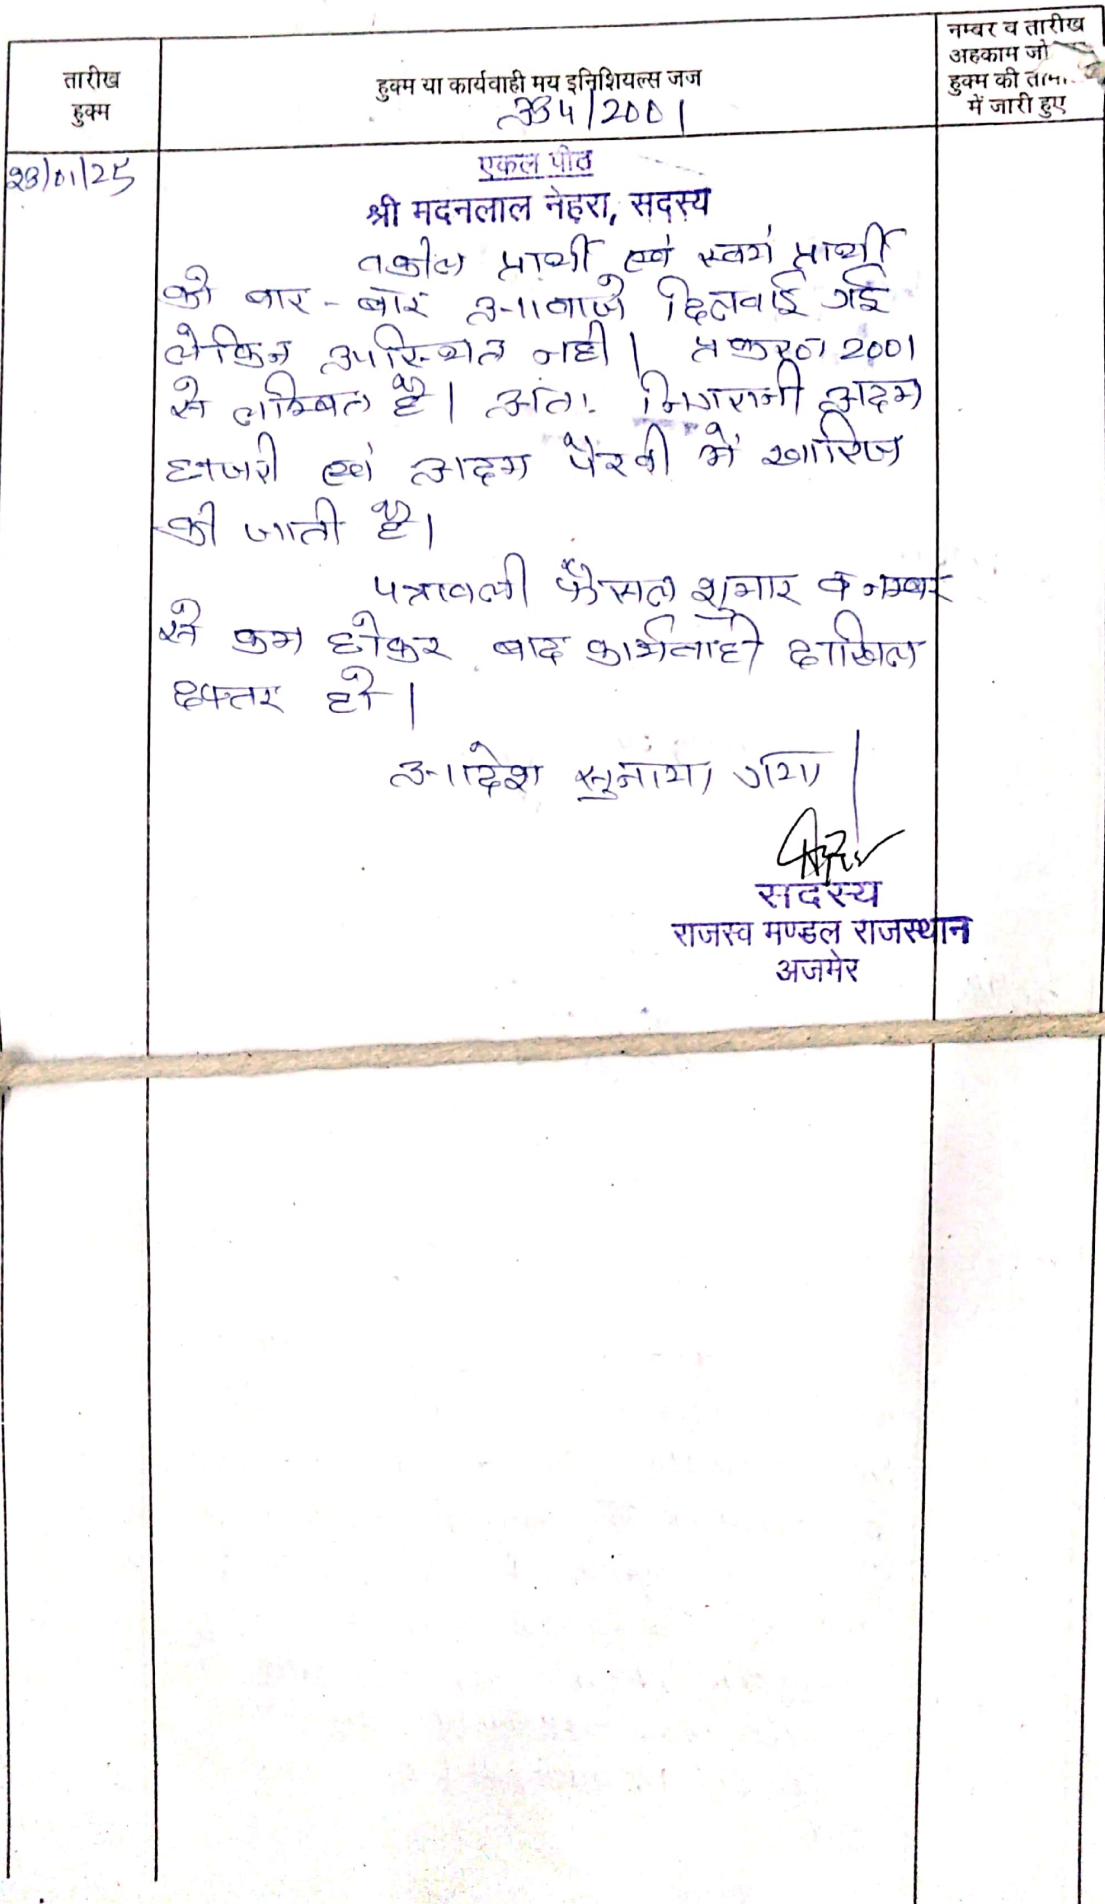 तारीख
हुक्म
हुक्म या कार्यवाही मय इनिशियल्स जज
नम्बर व तारीख
अहकाम जो
हुक्म की
में जारी हुए
334/2001
23/01/25
एकल पीठ
श्री मदनलाल नेहरा, सदस्य
वकील प्रार्थी एवं स्वयं प्रार्थी
को बार-बार आवाजे दिलवाई गई
लेकिन उपस्थित नहीं। प्रकरण 2001
से लम्बित है। अतः निगरानी अदम
हाजरी एवं अदम पैरवी में खारिज
की जाती है।
पत्रावली फैसल शुमार व नम्बर
से कम होकर बाद कार्यवाही दाखिल
दफ्तर हो।
आदेश सुनाया गया।
सदस्य
राजस्व मण्डल राजस्थान
अजमेर